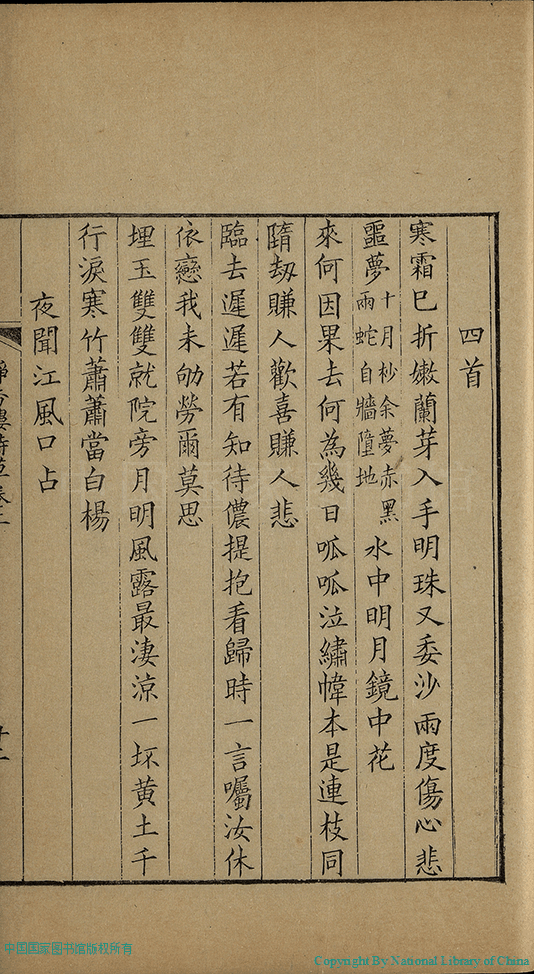 四首
寒霜已折嫩蘭芽入手明珠又委沙兩度傷心悲
噩夢十月杪余夢赤黑兩蛇自牆墮地水中明月鏡中花
來何因果去何為幾日呱呱泣繡幃本是連枝同
隋劫賺人歡喜賺人悲
臨去遲遲若有知待儂提抱看歸時一言囑汝休
依戀我未劬勞爾莫思
埋玉雙雙就院旁月明風露最淒涼一坏黃土千
行淚寒竹蕭蕭當白楊
夜聞江風口占
十二
中国国家图书馆版权所有
Copyright By National Library of China